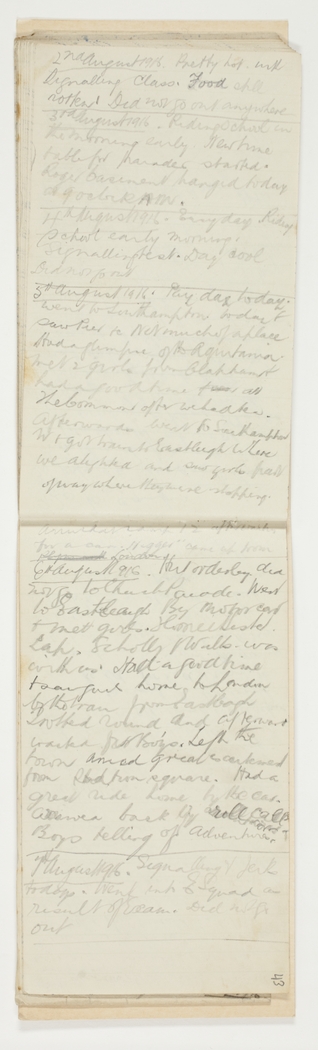 2nd August 1916. Pretty hot. with
Signalling Class. Food still
rotten! Did not go out anywhere
3rd August 1916. Riding School in
the morning early. New time
table for parades started.
Roger Casement hanged today
at 9 oclock A.M.
4th August 1916. Easy day Riding
School early morning.
Signalling test. Day cool
Did not go out
5th August 1916. Pay day today.
went to Southampton today &
saw Pier &c Not much of a place
Had a glimpse of the Aquitania.
met 2 girls from Clapham &
had a good time
The Common after we had tea.
Afterwards went to Southampton
& got train to Eastleigh where
we alighted and saw girls part
of way where they were stopping.
6th August 1916. Put orderley did
not go to Church Parade. Went
to Eastleigh By motor car
& met girls.
Lap. Scholly & Walls was
with us. Had a good time
& saw girls home, to London
by the train from Eastleigh
Looked round and afterwards
waited for Boys. Left the
town amid great excitement
from square. Had a
great ride home by the car.
Arrived back By roll call
Boys telling of Adventures.
7th August 1916. Signalling & Jerks
today. Went into B Squad as
result of exam. Did not go
out
43